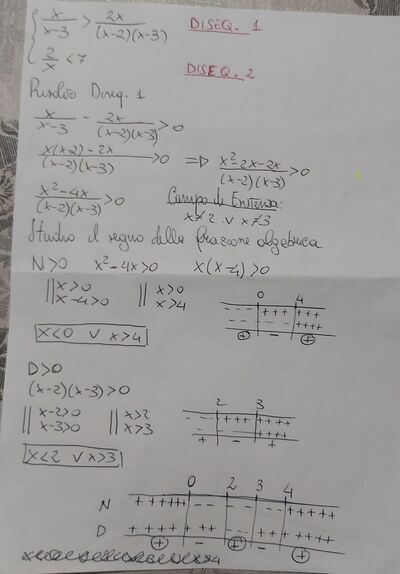 { x/(x-3) > 2x/((x-2)(x-3)) DISEQ. 1
2/x < 7 DISEQ. 2
Risolvo Diseq. 1
x/(x-3) - 2x/((x-2)(x-3)) > 0
(x(x-2)-2x)/((x-2)(x-3)) > 0 => (x²-2x-2x)/((x-2)(x-3)) > 0
(x²-4x)/((x-2)(x-3)) > 0 Campo di Esistenza:
x≠2 ∨ x≠3
Studio il segno della frazione algebrica
N>0 x²-4x>0 x(x-4)>0
|| x>0 || x>0 0 4
|| x-4>0 || x>4
--- +++ +++
--- --- ++++
⊕ - ⊕
x<0 ∨ x>4
D>0
(x-2)(x-3)>0
2 3
|| x-2>0 || x>2 --- +++ ++++
|| x-3>0 || x>3 --- --- ++++
+ - +
x<2 ∨ x>3
0 2 3 4
N ++++++ -- -- -- +++++
D ++++ +++ -- +++ +++++
⊕ - ⊕ - ⊕